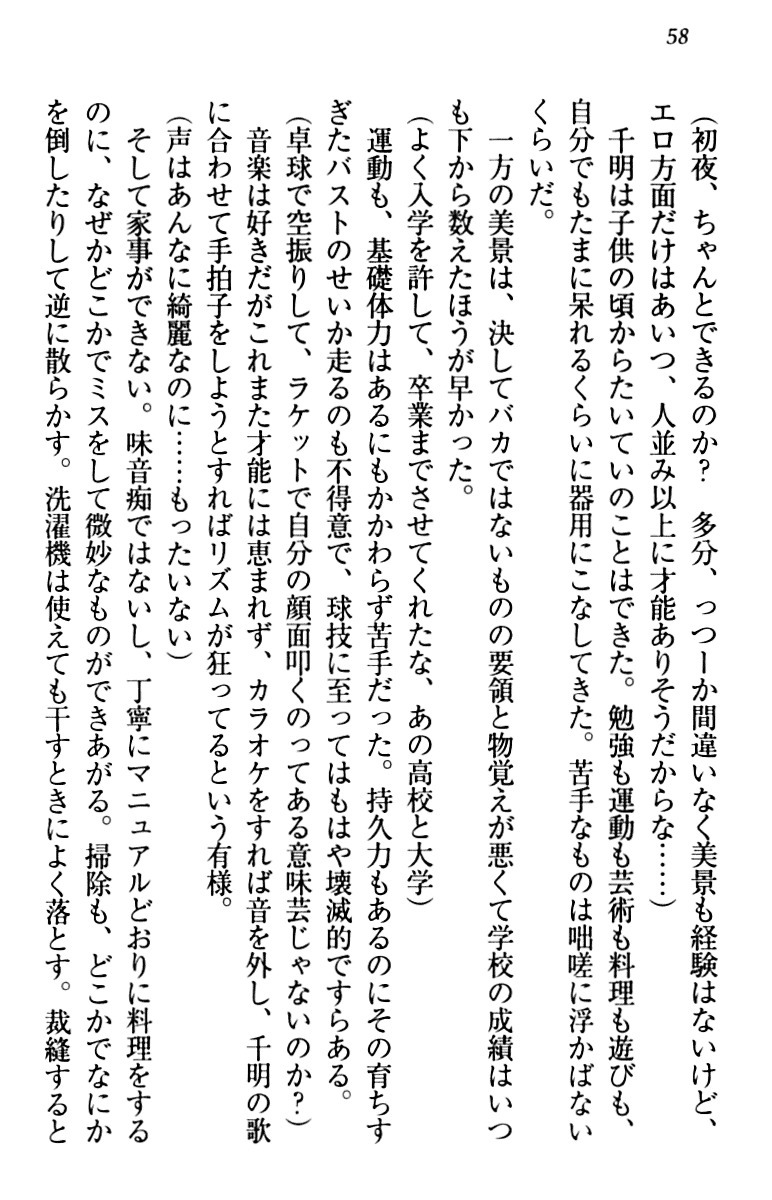 58
（初夜、ちゃんとできるのか？　多分、っつーか間違いなく美景も経験はないけど、
エロ方面だけはあいつ、人並み以上に才能ありそうだからな……）
　千明は子供の頃からたいていのことはできた。勉強も運動も芸術も料理も遊びも、
自分でもたまに呆れるくらいに器用にこなしてきた。苦手なものは咄嗟に浮かばない
くらいだ。
　一方の美景は、決してバカではないものの要領と物覚えが悪くて学校の成績はいつ
も下から数えたほうが早かった。
（よく入学を許して、卒業までさせてくれたな、あの高校と大学）
　運動も、基礎体力はあるにもかかわらず苦手だった。持久力もあるのにその育ちす
ぎたバストのせいか走るのも不得意で、球技に至ってはもはや壊滅的ですらある。
（卓球で空振りして、ラケットで自分の顔面叩くのってある意味芸じゃないのか？）
　音楽は好きだがこれまた才能には恵まれず、カラオケをすれば音を外し、千明の歌
に合わせて手拍子をしようとすればリズムが狂ってるという有様。
（声はあんなに綺麗なのに……もったいない）
　そして家事ができない。味音痴ではないし、丁寧にマニュアルどおりに料理をする
のに、なぜかどこかでミスをして微妙なものができあがる。掃除も、どこかでなにか
を倒したりして逆に散らかす。洗濯機は使えても干すときによく落とす。裁縫すると